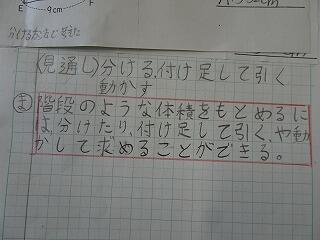 E 9cm F
分ける方法で考えた
(見通し)分ける、付け足して引く
動かす
ま 階段のような体積をもとめるに
は、分けたり、付け足して引く、や動
かして求めることができる。